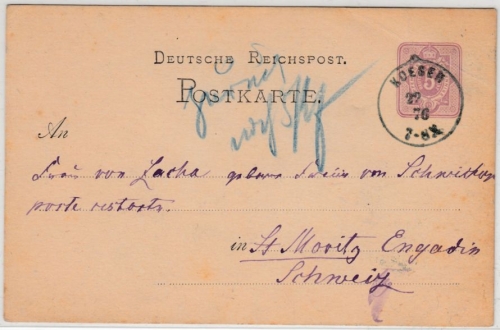 DEUTSCHE REICHSPOST.
POSTKARTE.
KOESEN
22
76
7-8N
5
An
Frau von geborene von
poste restante.
in St Moritz Engadin
Schweiz